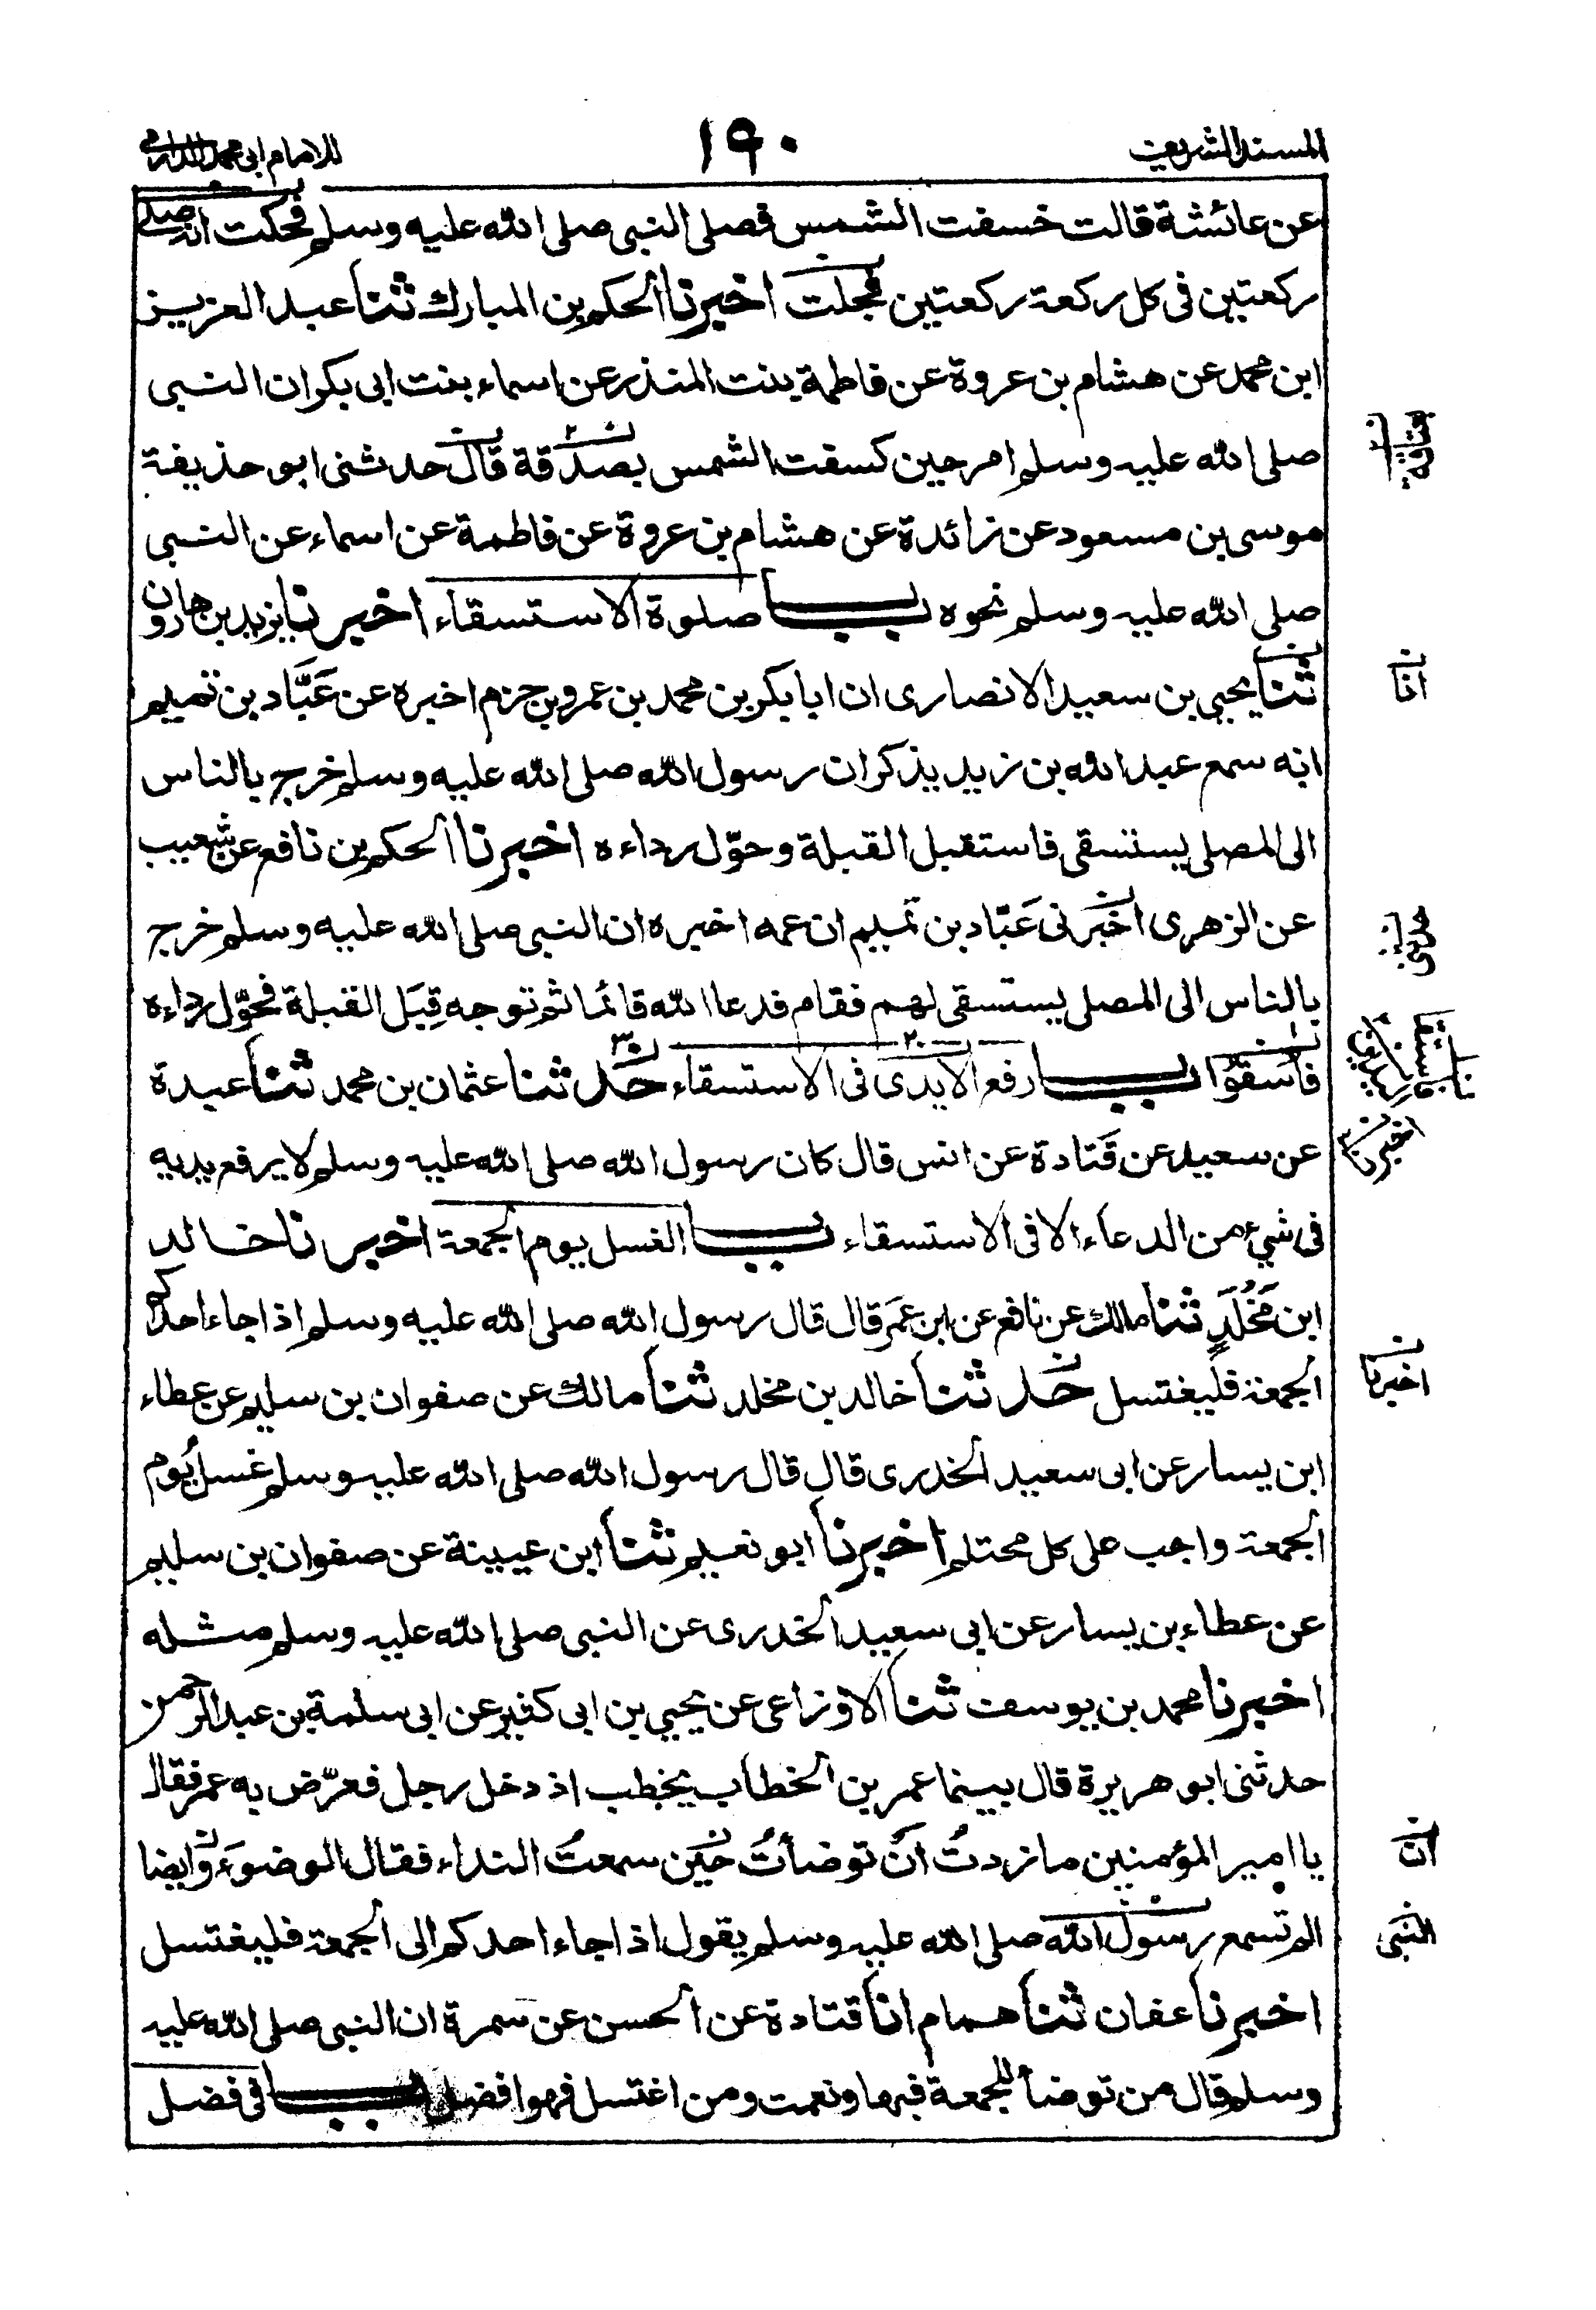 المسند الشريف ١٩٠ للامام ابى محمد الدارمى
عن عائشة قالت خسفت الشمس فصلى النبى صلى الله عليه وسلم فحكت انه صلى
ركعتين فى كل ركعة ركعتين فجلت اخبرنا الحكم بن المبارك ثنا عبد العزيز
ابن محمد عن هشام بن عروة عن فاطمة بنت المنذر عن اسماء بنت ابى بكر ان النبى
صلى الله عليه وسلم امر حين كسفت الشمس بصدقة قال حدثنى ابو حذيفة
موسى بن مسعود عن زائدة عن هشام بن عروة عن فاطمة عن اسماء عن النبى
صلى الله عليه وسلم نحوه باب صلوة الاستسقاء اخبرنا يزيد بن هارون
ثنا يحيى بن سعيد الانصارى ان ابا بكر بن محمد بن عمرو بن حزم اخبره عن عَبَّاد بن تميم
انه سمع عبد الله بن زيد يذكر ان رسول الله صلى الله عليه وسلم خرج بالناس
الى المصلى يستسقى فاستقبل القبلة وحوّل رداءه اخبرنا الحكم بن نافع عن شعيب
عن الزهرى اخبرنى عَبّاد بن تميم ان عمه اخبره ان النبى صلى الله عليه وسلم خرج
بالناس الى المصلى يستسقى لهم فقام فدعا الله قائما ثم توجه قِبَل القبلة فحوّل رداءه
فأسقوا باب رفع الايدى فى الاستسقاء حدثنا عثمان بن محمد ثنا عبدة
عن سعيد عن قَتادة عن انس قال كان رسول الله صلى الله عليه وسلم لا يرفع يديه
فى شىء من الدعاء الا فى الاستسقاء باب الغسل يوم الجمعة اخبرنا خالد
ابن مَخْلَدٍ ثنا مالك عن نافع عن ابن عمَر قال قال رسول الله صلى الله عليه وسلم اذا جاء احدكم
الجمعة فليغتسل حدثنا خالد بن مخلد ثنا مالك عن صفوان بن سليم عن عطاء
ابن يسار عن ابى سعيد الخدرى قال قال رسول الله صلى الله عليه وسلم غسل يوم
الجمعة واجب على كل محتلم اخبرنا ابو نعيم ثنا ابن عيينة عن صفوان بن سليم
عن عطاء بن يسار عن ابى سعيد الخدرى عن النبى صلى الله عليه وسلم مثله
اخبرنا محمد بن يوسف ثنا الاوزاعى عن يحيى بن ابى كثير عن ابى سلمة بن عبد الرحمن
حدثنى ابو هريرة قال بينما عمر بن الخطاب يخطب اذ دخل رجل فعرّض به عمر فقال
يا امير المؤمنين ما زدتُ انْ توضأتُ حين سمعتُ النداء فقال الوضوءَ وايضا
الم تسمع رسول الله صلى الله عليه وسلم يقول اذا جاء احدكم الى الجمعة فليغتسل
اخبرنا عفان ثنا همام انا قتادة عن الحسن عن سمرة ان النبى صلى الله عليه
وسلم قال من توضأ للجمعة فبها ونعمت ومن اغتسل فهو افضل باب فى فضل
بعتاقة
انا
حدثنى
اخبرنا
اخبرنا
ان
النبى